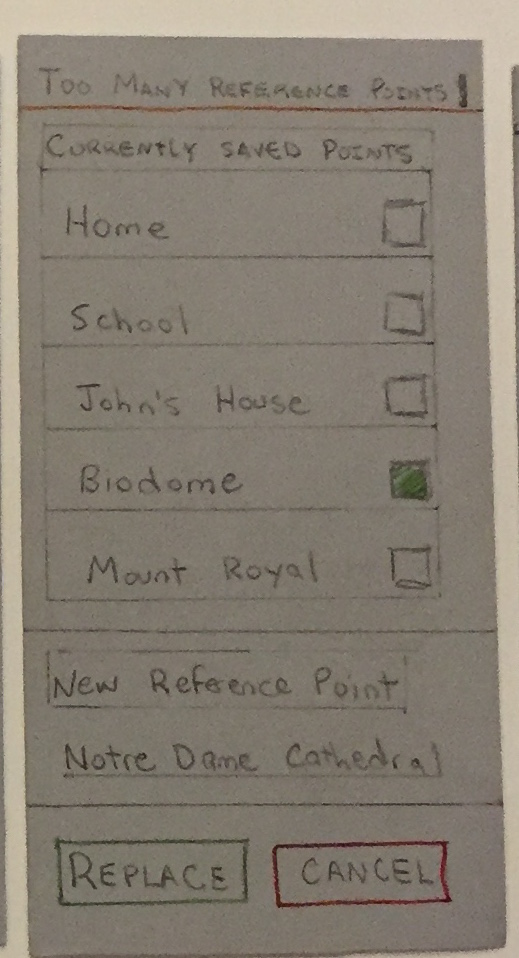 TOO MANY REFERENCE POINTS!
CURRENTLY SAVED POINTS
Home
School
John's House
Biodome
Mount Royal
New Reference Point
Notre Dame Cathedral
REPLACE CANCEL